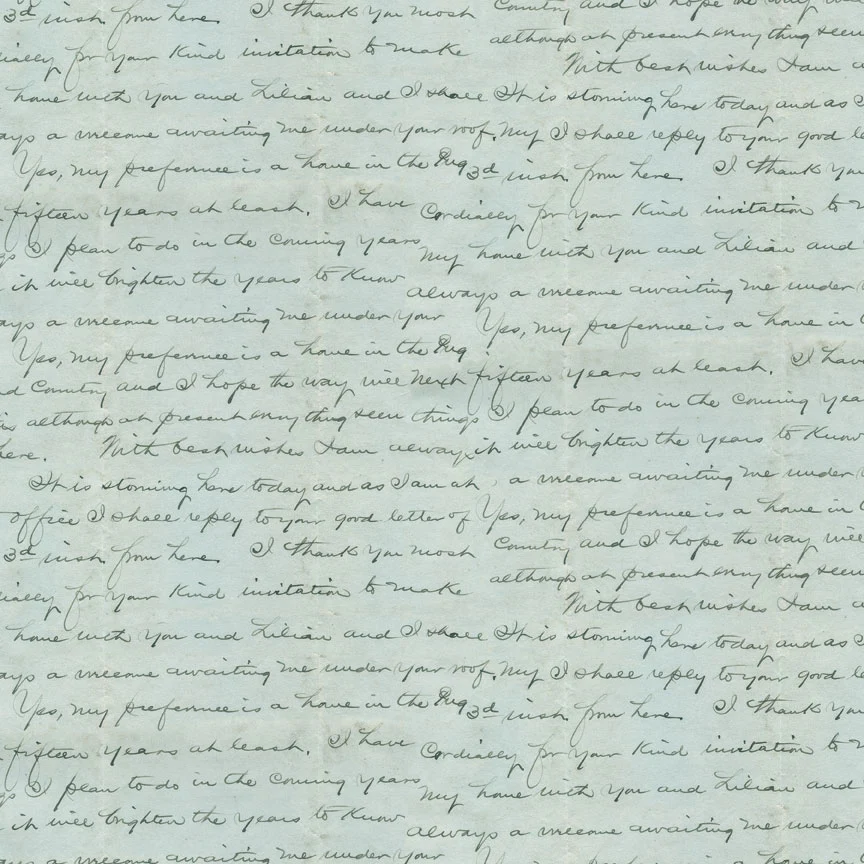 3d inst. from here. I thank you most
Country and I hope the way will
cordially for your kind invitation to make
although at present everything seem
With best wishes I am
home with you and Lilian and I shall
It is storming here today and as
always a welcome awaiting me under your roof. My
I shall reply to your good
Yes, my preference is a home in the
3d inst. from here. I thank you
fifteen years at least. I have
Cordially for your kind invitation to
I plan to do in the coming years
My home with you and Lilian and
it will brighten the years to know
always a welcome awaiting me under
always a welcome awaiting me under your
Yes, my preference is a home in
Yes, my preference is a home in the
Next fifteen years at least. I have
and Country and I hope the way will
things I plan to do in the coming
as although at present everything seem
it will brighten the years to know
here. With best wishes I am always
a welcome awaiting me under
It is storming here today and as I am at
Yes, my preference is a home in
office I shall reply to your good letter of
Country and I hope the way will
3d inst. from here. I thank you most
although at present everything seem
cordially for your kind invitation to make
With best wishes I am
home with you and Lilian and I shall
It is storming here today and as
always a welcome awaiting me under your roof. My
I shall reply to your good
Yes, my preference is a home in the
3d inst. from here. I thank you
fifteen years at least. I have
Cordially for your kind invitation to
I plan to do in the coming years
My home with you and Lilian and
it will brighten the years to know
always a welcome awaiting me under
always a welcome awaiting me under your